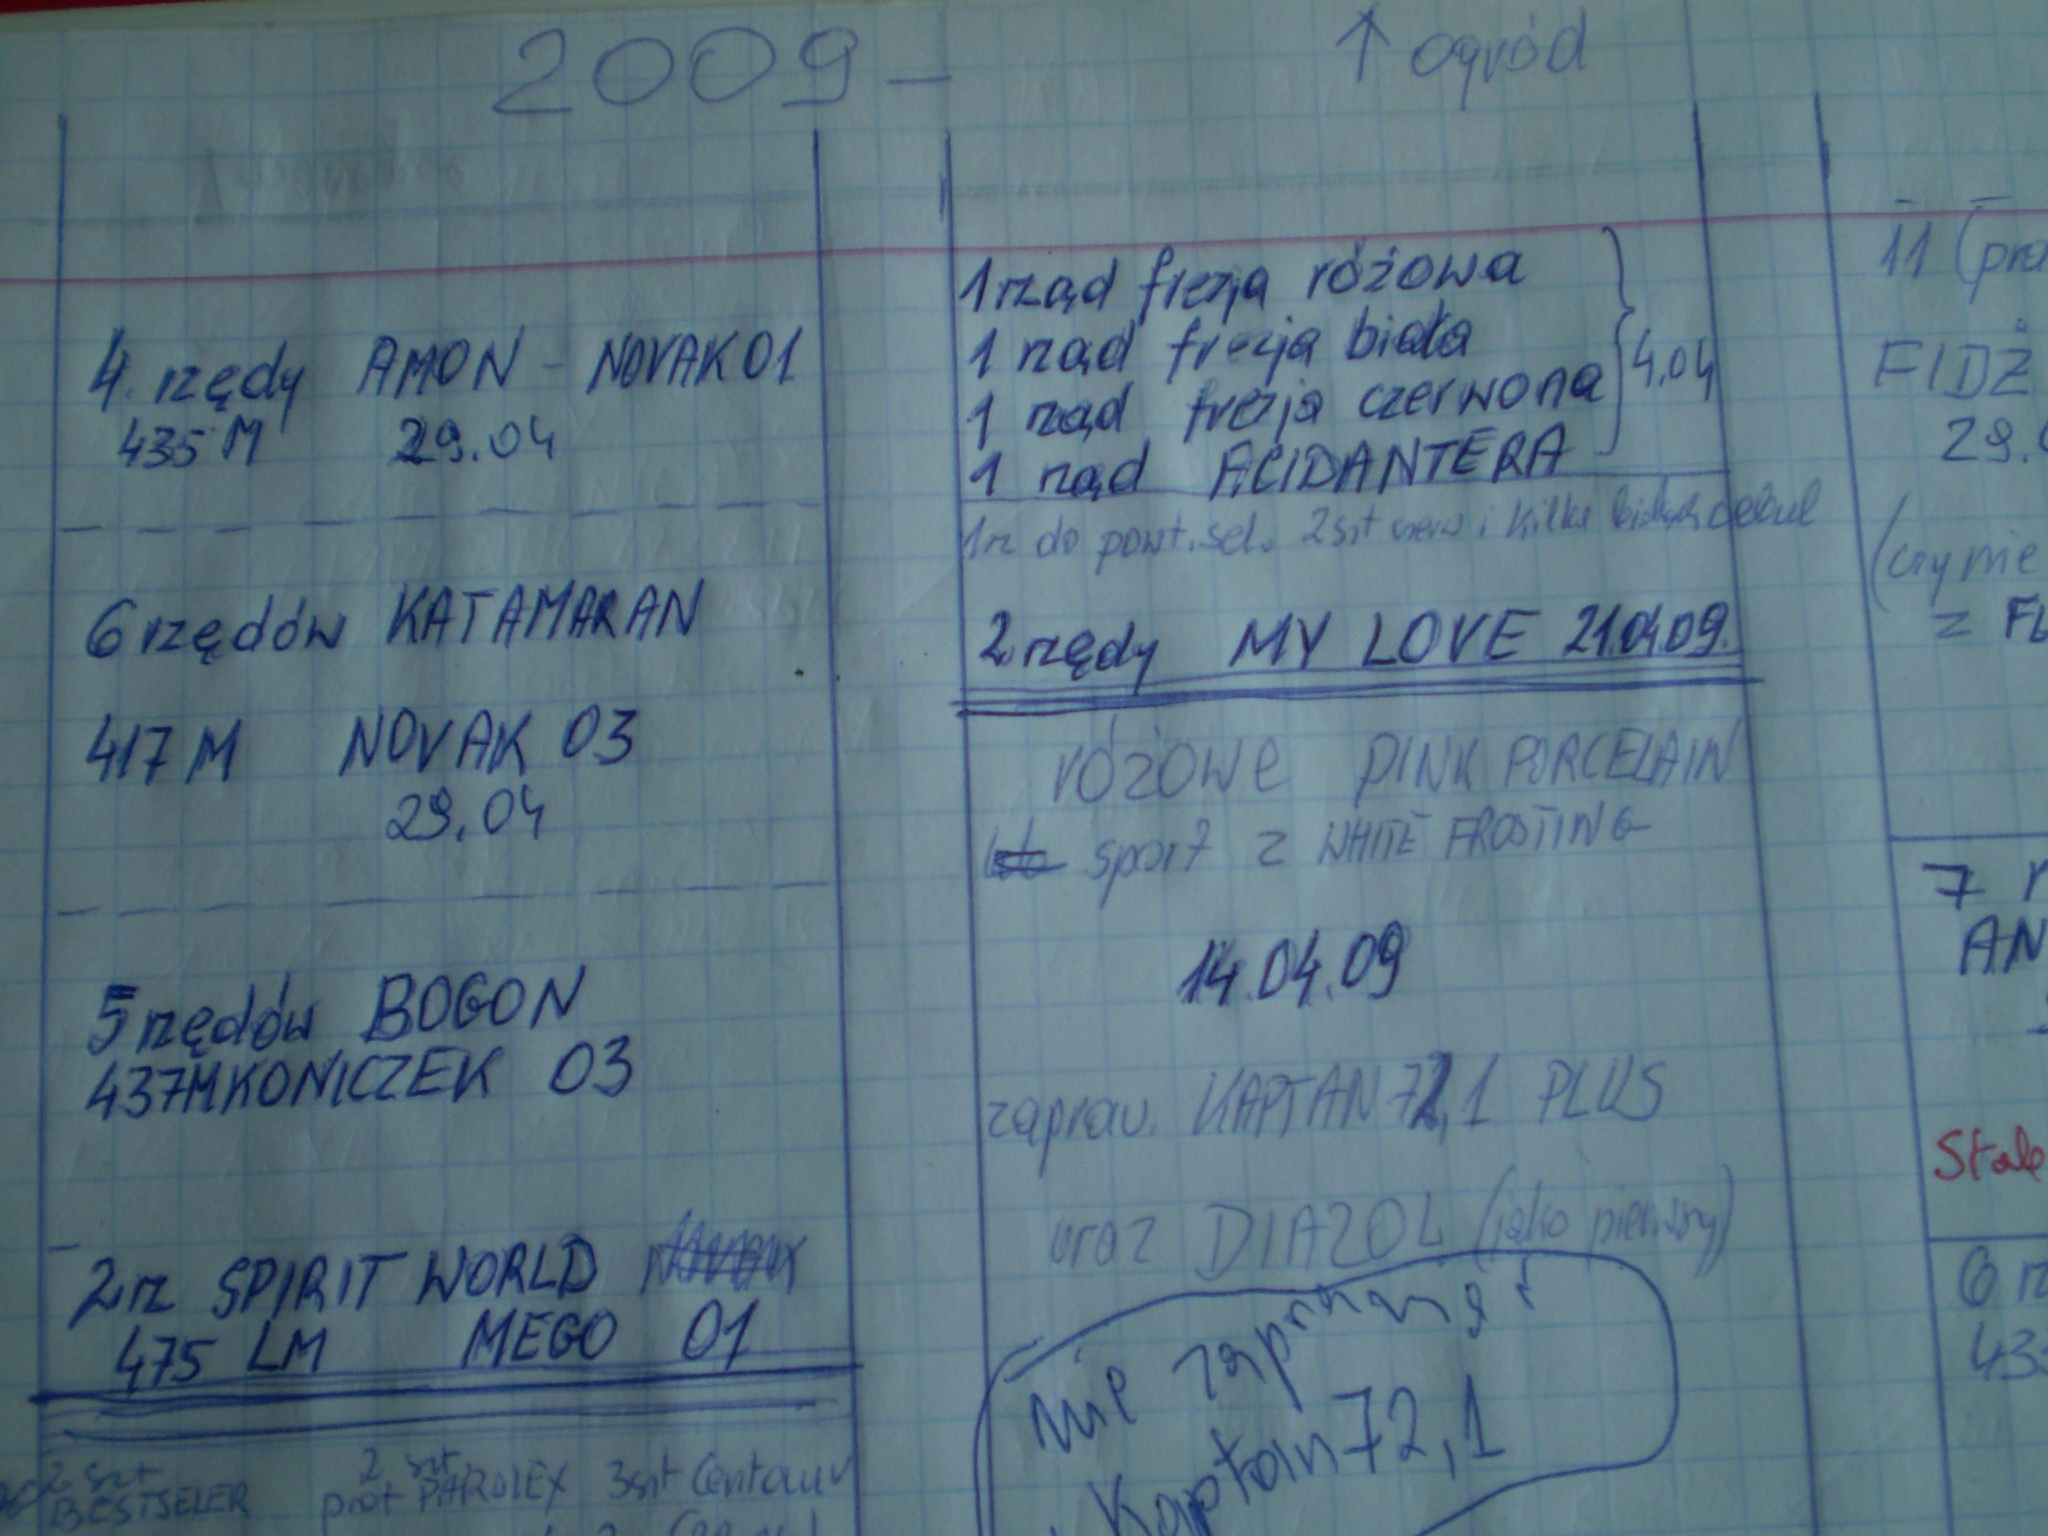 2009 -
↑ ogród
4. rzędy AMON - NOVAK 01
435 M 29.04
6 rzędów KATAMARAN
417 M NOVAK 03
29.04
5 rzędów BOGON
437M KONICZEK 03
2 rz SPIRIT WORLD
475 LM MEGO 01
2 szt
BESTSELER
2 szt
prot PAROLEX 3szt Centaur
1 rząd frezja różowa
1 rząd frezja biała
1 rząd frezja czerwona
1 rząd ACIDANTERA
4.04
1rz do powt. sel. 2szt czerw i kilka białych cebul
2 rzędy MY LOVE 21.04.09.
różowe PINK PORCELAIN
sport z WHITE FROSTING
14.04.09
zapraw. KAPTAN 72,1 PLUS
oraz DIAZOL (jako pierwszy)
nie zaprawiać
Kaptain 72,1
11 (pra
FIDŻ
29.
(czy nie
z FL
7 r
AN
Stale
6 rz
43